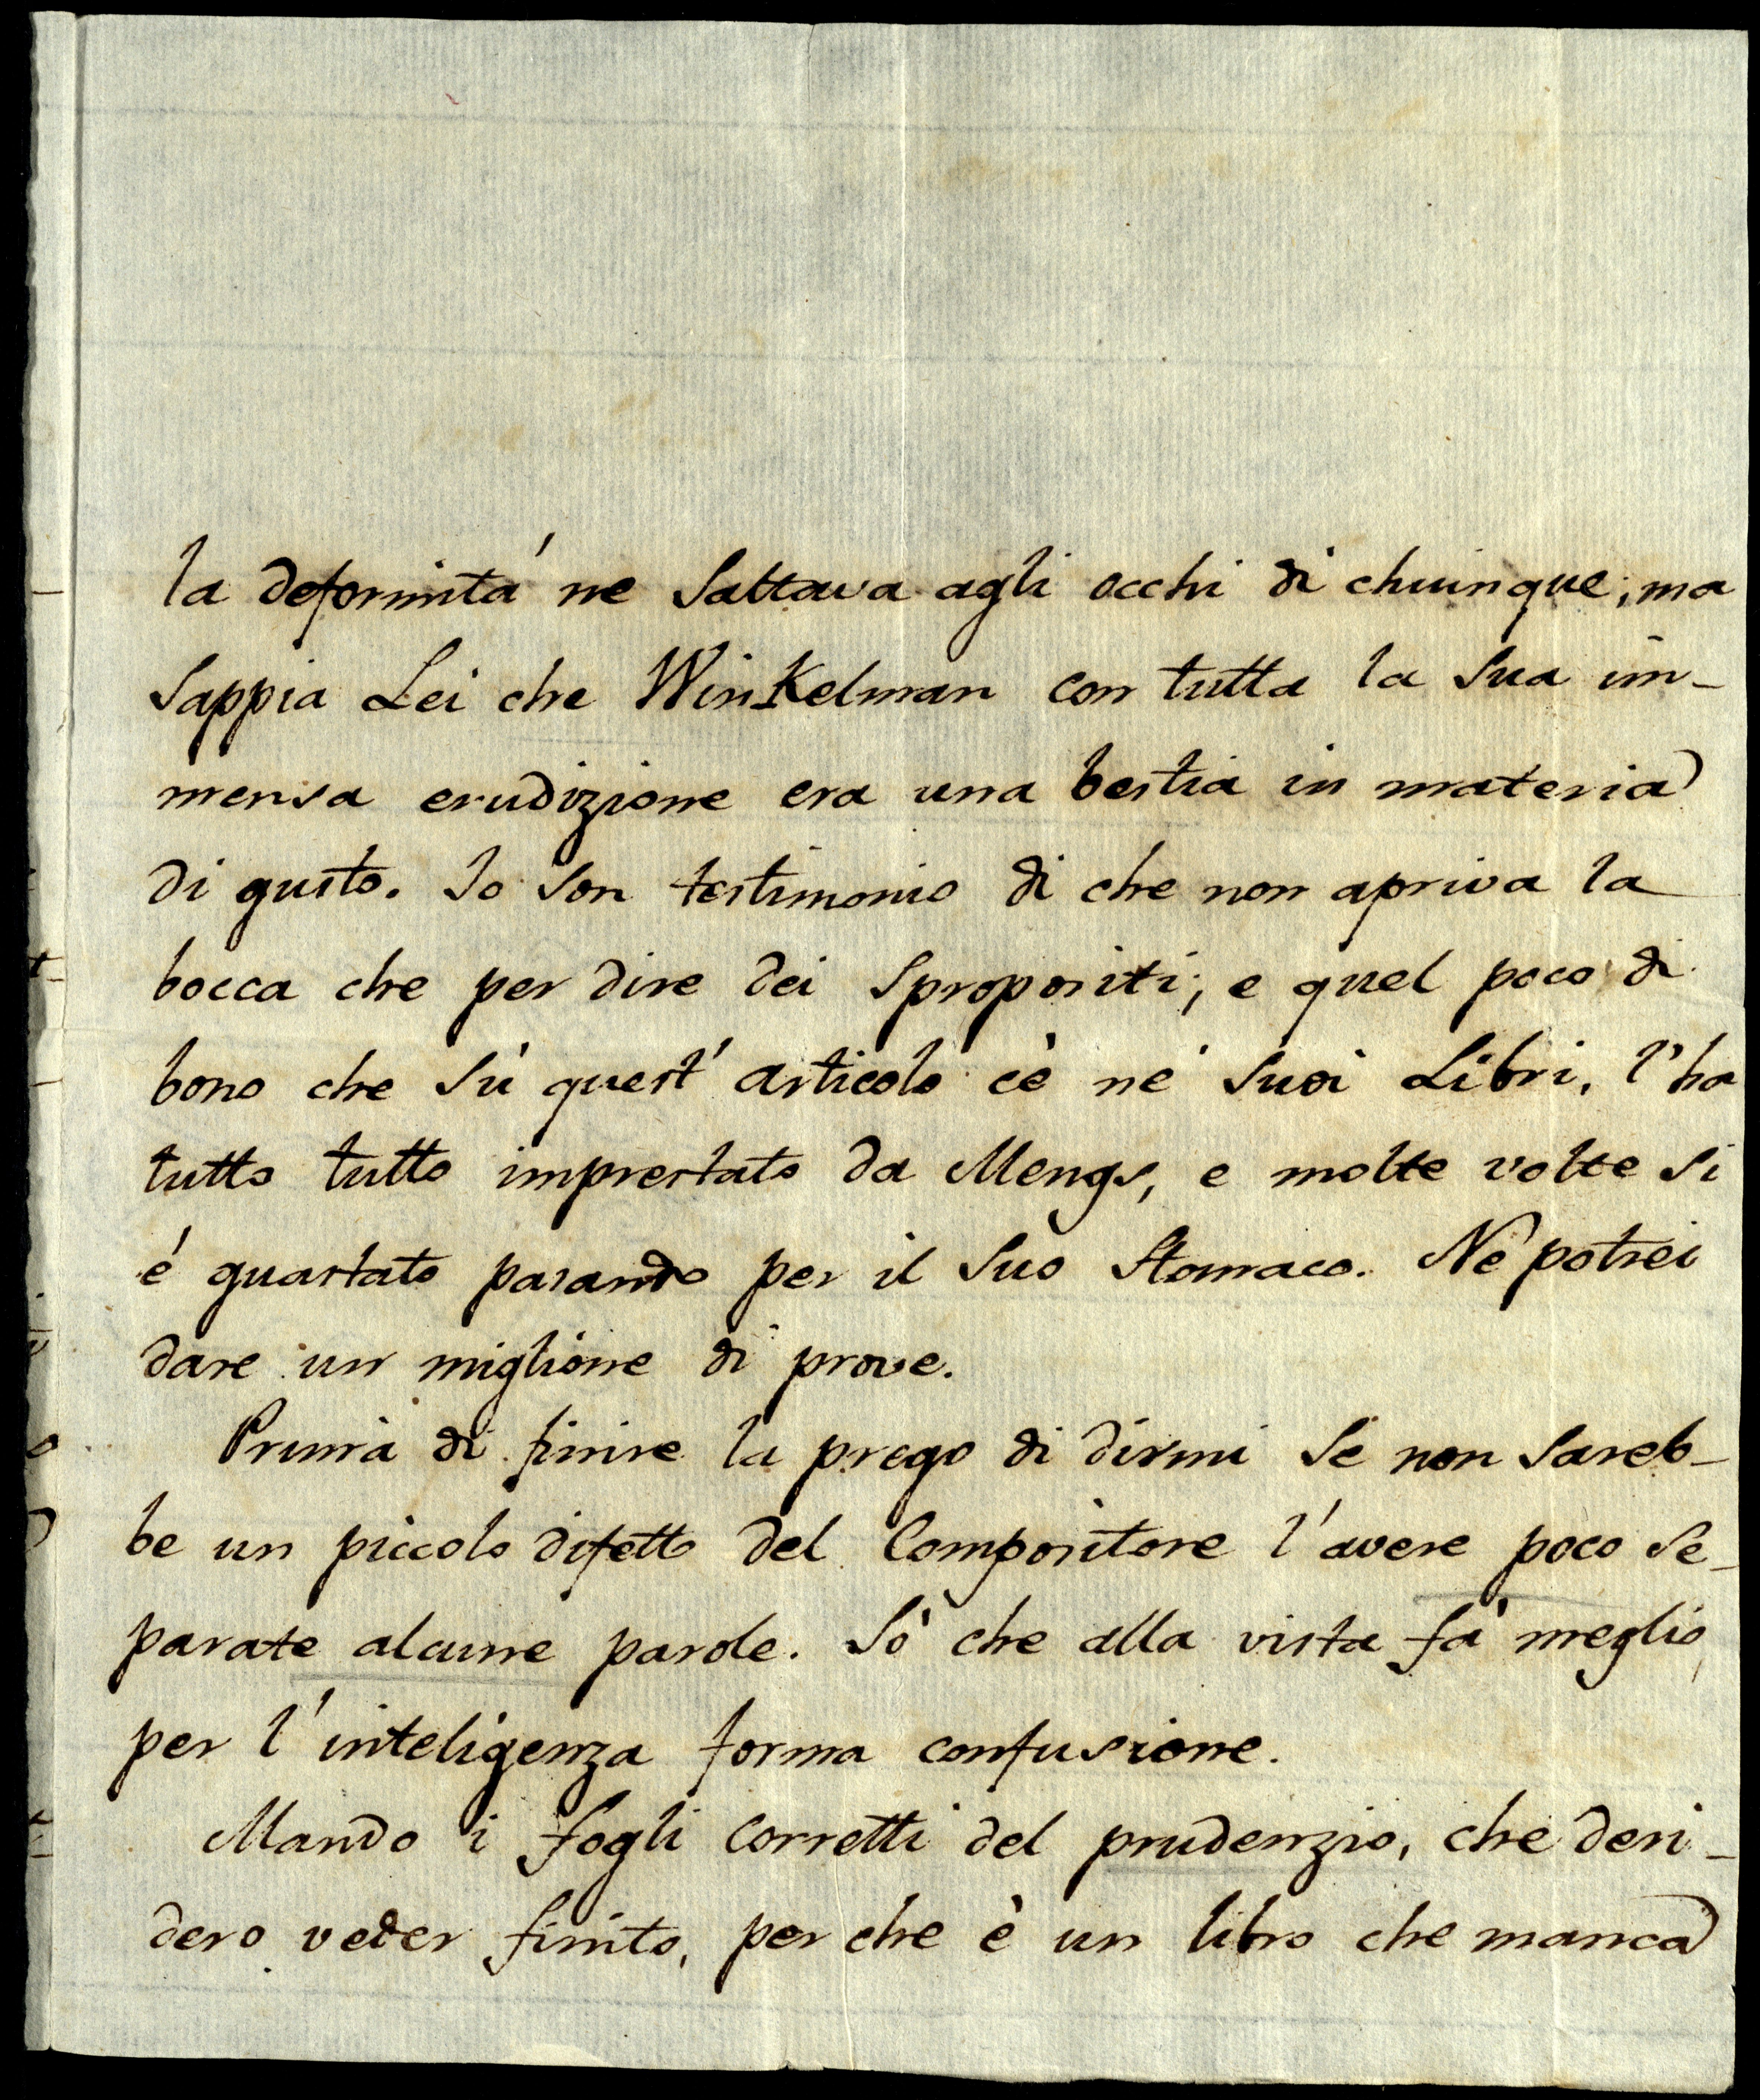 la deformitá ne saltava agli occhi di chiunque; ma
sappia Lei che WinKelman con tutta la sua im-
mensa erudizione era una bestia in materia
di gusto. Io son testimonio di che non apriva la
bocca che per dire dei spropositi; e quel poco di
bono che sù quest' articolo c'è ne' suoi Libri, l'ha
tutto tutto imprestato da Mengs, e molte volte si
é guastato pasando per il suo stomaco. Né potrei
dare un miglione di prove.
Prima di finire la prego di dirmi se non sareb-
be un piccolo difetto del Compositore l'avere poco se-
parate alcune parole. Sò che alla vista fà meglio,
per l'inteligenza forma confusione.
Mando i fogli corretti del prudenzio, che desi-
dero veder finito, per che è un libro che manca